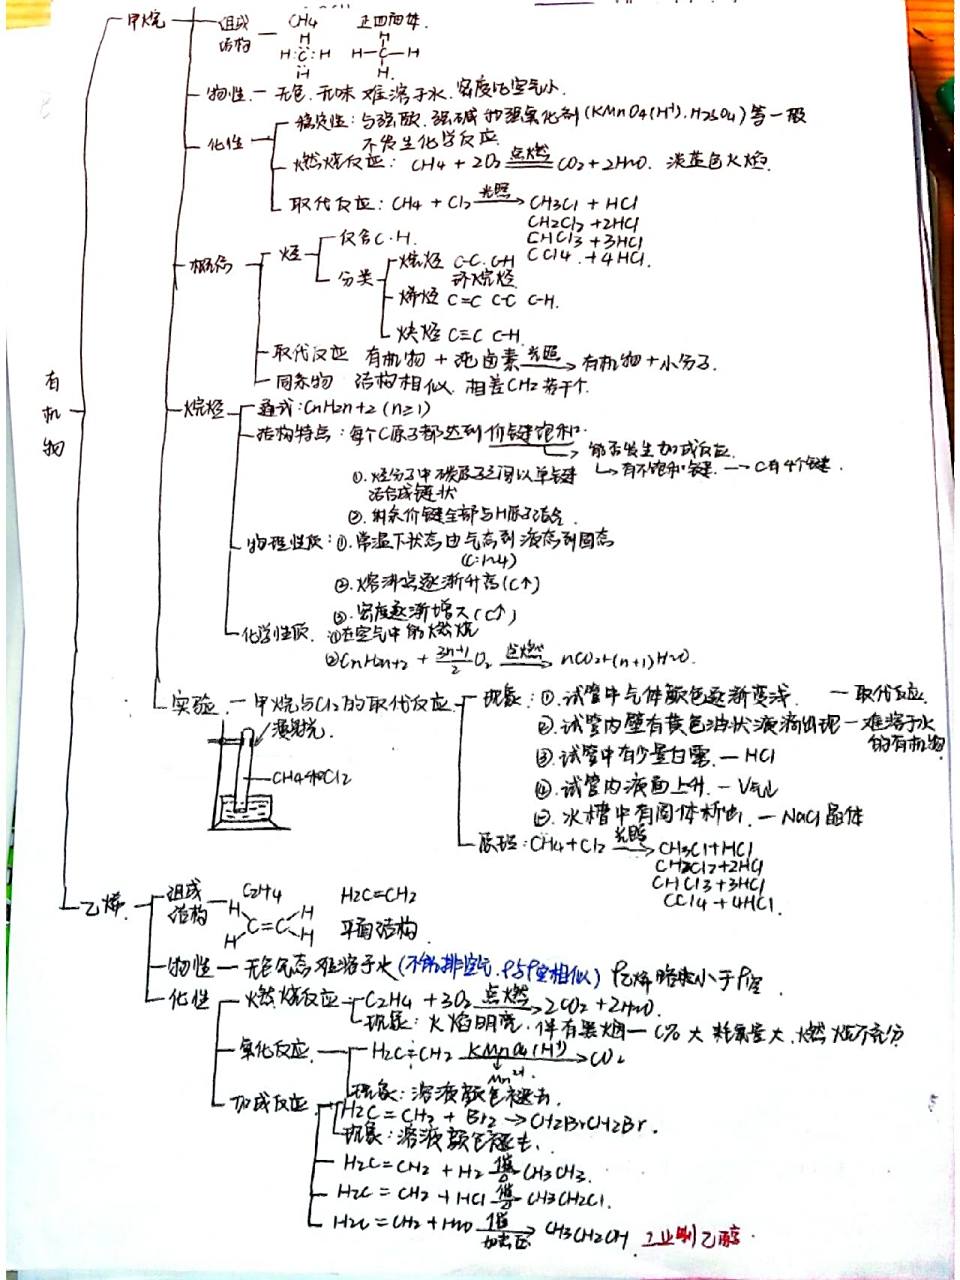 有机物
甲烷
组成 CH4 正四面体.
结构
H
H:C:H H-C-H
H H.
物性 - 无色.无味 难溶于水.密度比空气小.
化性
稳定性:与强酸.强碱和强氧化剂(KMnO4(H+).H2SO4)等一般
不发生化学反应
燃烧反应: CH4 + 2O2 点燃 CO2+2H2O. 淡蓝色火焰.
取代反应: CH4 + Cl2 光照 CH3Cl + HCl
CH2Cl2 +2HCl
CHCl3 +3HCl
CCl4 . +4HCl.
概念
烃
仅含C.H.
分类
烷烃 C-C. C-H
环烷烃
烯烃 C=C C-C C-H.
炔烃 C≡C C-H.
取代反应 有机物 + 纯卤素 光照 有机物+小分子.
同系物 结构相似.相差CH2若干个.
烷烃
通式: CnH2n+2 (n≥1)
结构特点:每个C原子都达到价键饱和.
能否发生加成反应.
有不饱和键. → C有4个键.
①.烃分子中碳原子之间以单键
结合成链状
②.剩余价键全部与H原子结合.
物理性质:①.常温下状态由气态到液态到固态
(C:1~4)
②.熔沸点逐渐升高(C↑)
③.密度逐渐增大(C↑)
化学性质. ①在空气中能燃烧
②CnH2n+2 + 3n+1/2 O2 点燃 nCO2+(n+1)H2O.
实验 - 甲烷与Cl2的取代反应
漫射光
CH4和Cl2
现象:①.试管中气体颜色逐渐变浅. — 取代反应.
②.试管内壁有黄色油状液滴出现 — 难溶于水
的有机物
③.试管中有少量白雾. — HCl
④.试管内液面上升. — V气↓
⑤.水槽中有固体析出. — NaCl晶体
原理: CH4+Cl2 光照 CH3Cl+HCl
CH2Cl2+2HCl
CHCl3+3HCl
CCl4+4HCl.
乙烯.
组成 C2H4 H2C=CH2
结构
H H
C=C 平面结构
H H
物性 - 无色气态 难溶于水(不能排空气.ρ与ρ空相似) ρ乙烯略小于ρ空.
化性
燃烧反应 C2H4 + 3O2 点燃 2CO2 + 2H2O.
现象: 火焰明亮,伴有黑烟 — C% 大 耗氧量大.燃烧不充分
氧化反应. H2C=CH2 KMnO4(H+) CO2
Mn2+
现象:溶液颜色褪去.
加成反应
H2C=CH2 + Br2 → CH2BrCH2Br.
现象:溶液颜色褪去.
H2C=CH2 + H2 催 △ CH3CH3.
H2C=CH2 + HCl 催 △ CH3CH2Cl.
H2C=CH2+H2O 催 加热压 CH3CH2OH 工业制乙醇.